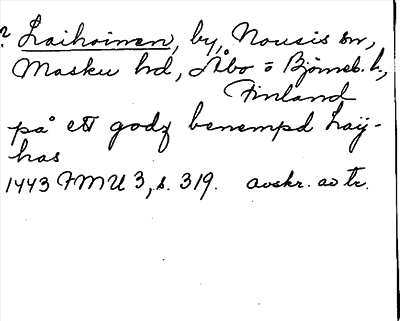 ? Laihoinen, by, Nousis sn,
Masku hd, Åbo o Björneb. l.,
Finland
på ett godz benempd Laÿ-
has
1443 FMU 3, s. 319. avskr. av tr.